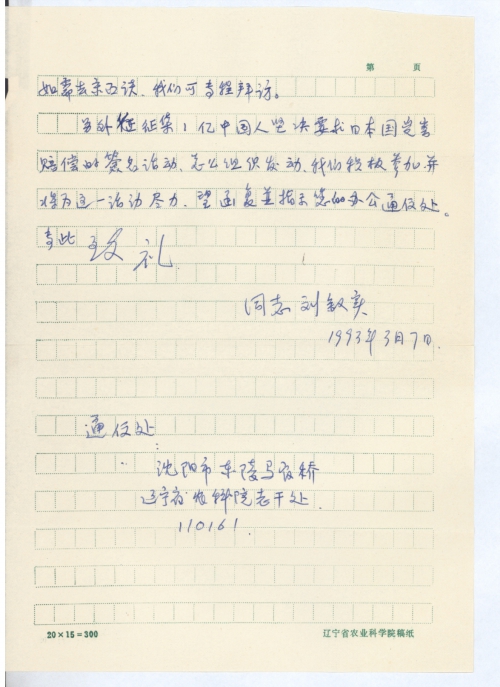 第 页
如需去京面谈、我们可专程拜访。
另外征集1亿中国人坚决要求日本国受害
赔偿的签名活动、怎么组织发动、我们积极参加并
将为这一活动尽力、望函复并指示您的办公通信处。
专此 致礼
同志 刘毅实
1993年3月7日.
通信处:
沈阳市东陵马官桥
辽宁省农科院老干处.
110161.
20×15=300
辽宁省农业科学院稿纸